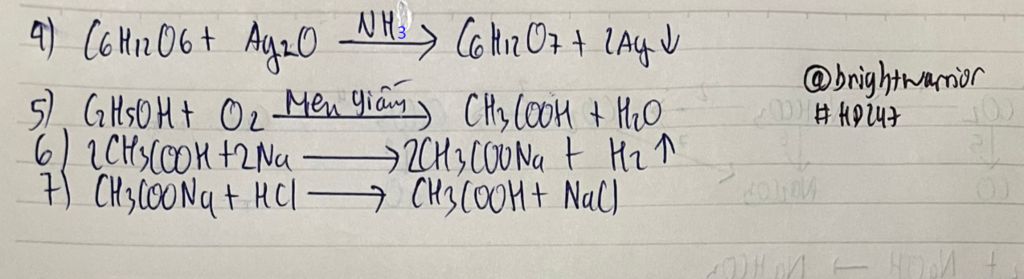 4) C6H12O6 + Ag2O NH3→ C6H12O7 + 2Ag↓
@brightwarrior
5) C2H5OH + O2 Men giấm→ CH3COOH + H2O
#HD247
6) 2CH3COOH + 2Na → 2CH3COONa + H2↑
7) CH3COONa + HCl → CH3COOH + NaCl